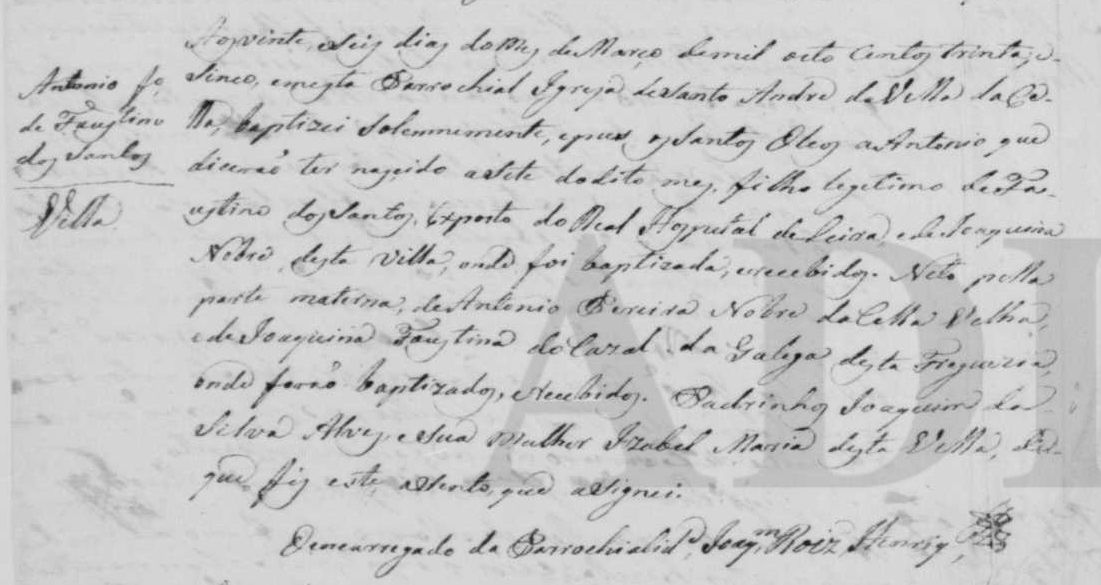 Antonio fo
de Faustino
dos Santos
Villa
Aos vinte, seis dias do Mes de Março de mil oito Centos trinta, e
Sinco, e nesta Parrochial Igreja de Santo Andre da Villa da Ce-
lla, baptizei Solemnemente, e pus os Santos Oleos a Antonio que
dicerão ter nascido a sete do dito mes, filho legetimo de Fa-
ustino dos Santos, Exposto do Real Hospital de Leiria, e de Joaquina
Nobre desta Villa, onde foi baptizada, e recebidos. Neto pella
parte materna, de Antonio Pereira Nobre da Cella Velha,
e de Joaquina Faustina do Cazal da Galega desta Freguezia
onde forão baptizados, e Recebidos. Padrinhos Joaquim da
Silva Alves, e sua Mulher Izabel Maria desta Villa, de
que fis este assento, que asignei.
O encarregado da Parrochialide Joaqm Roiz Henriq
ADL